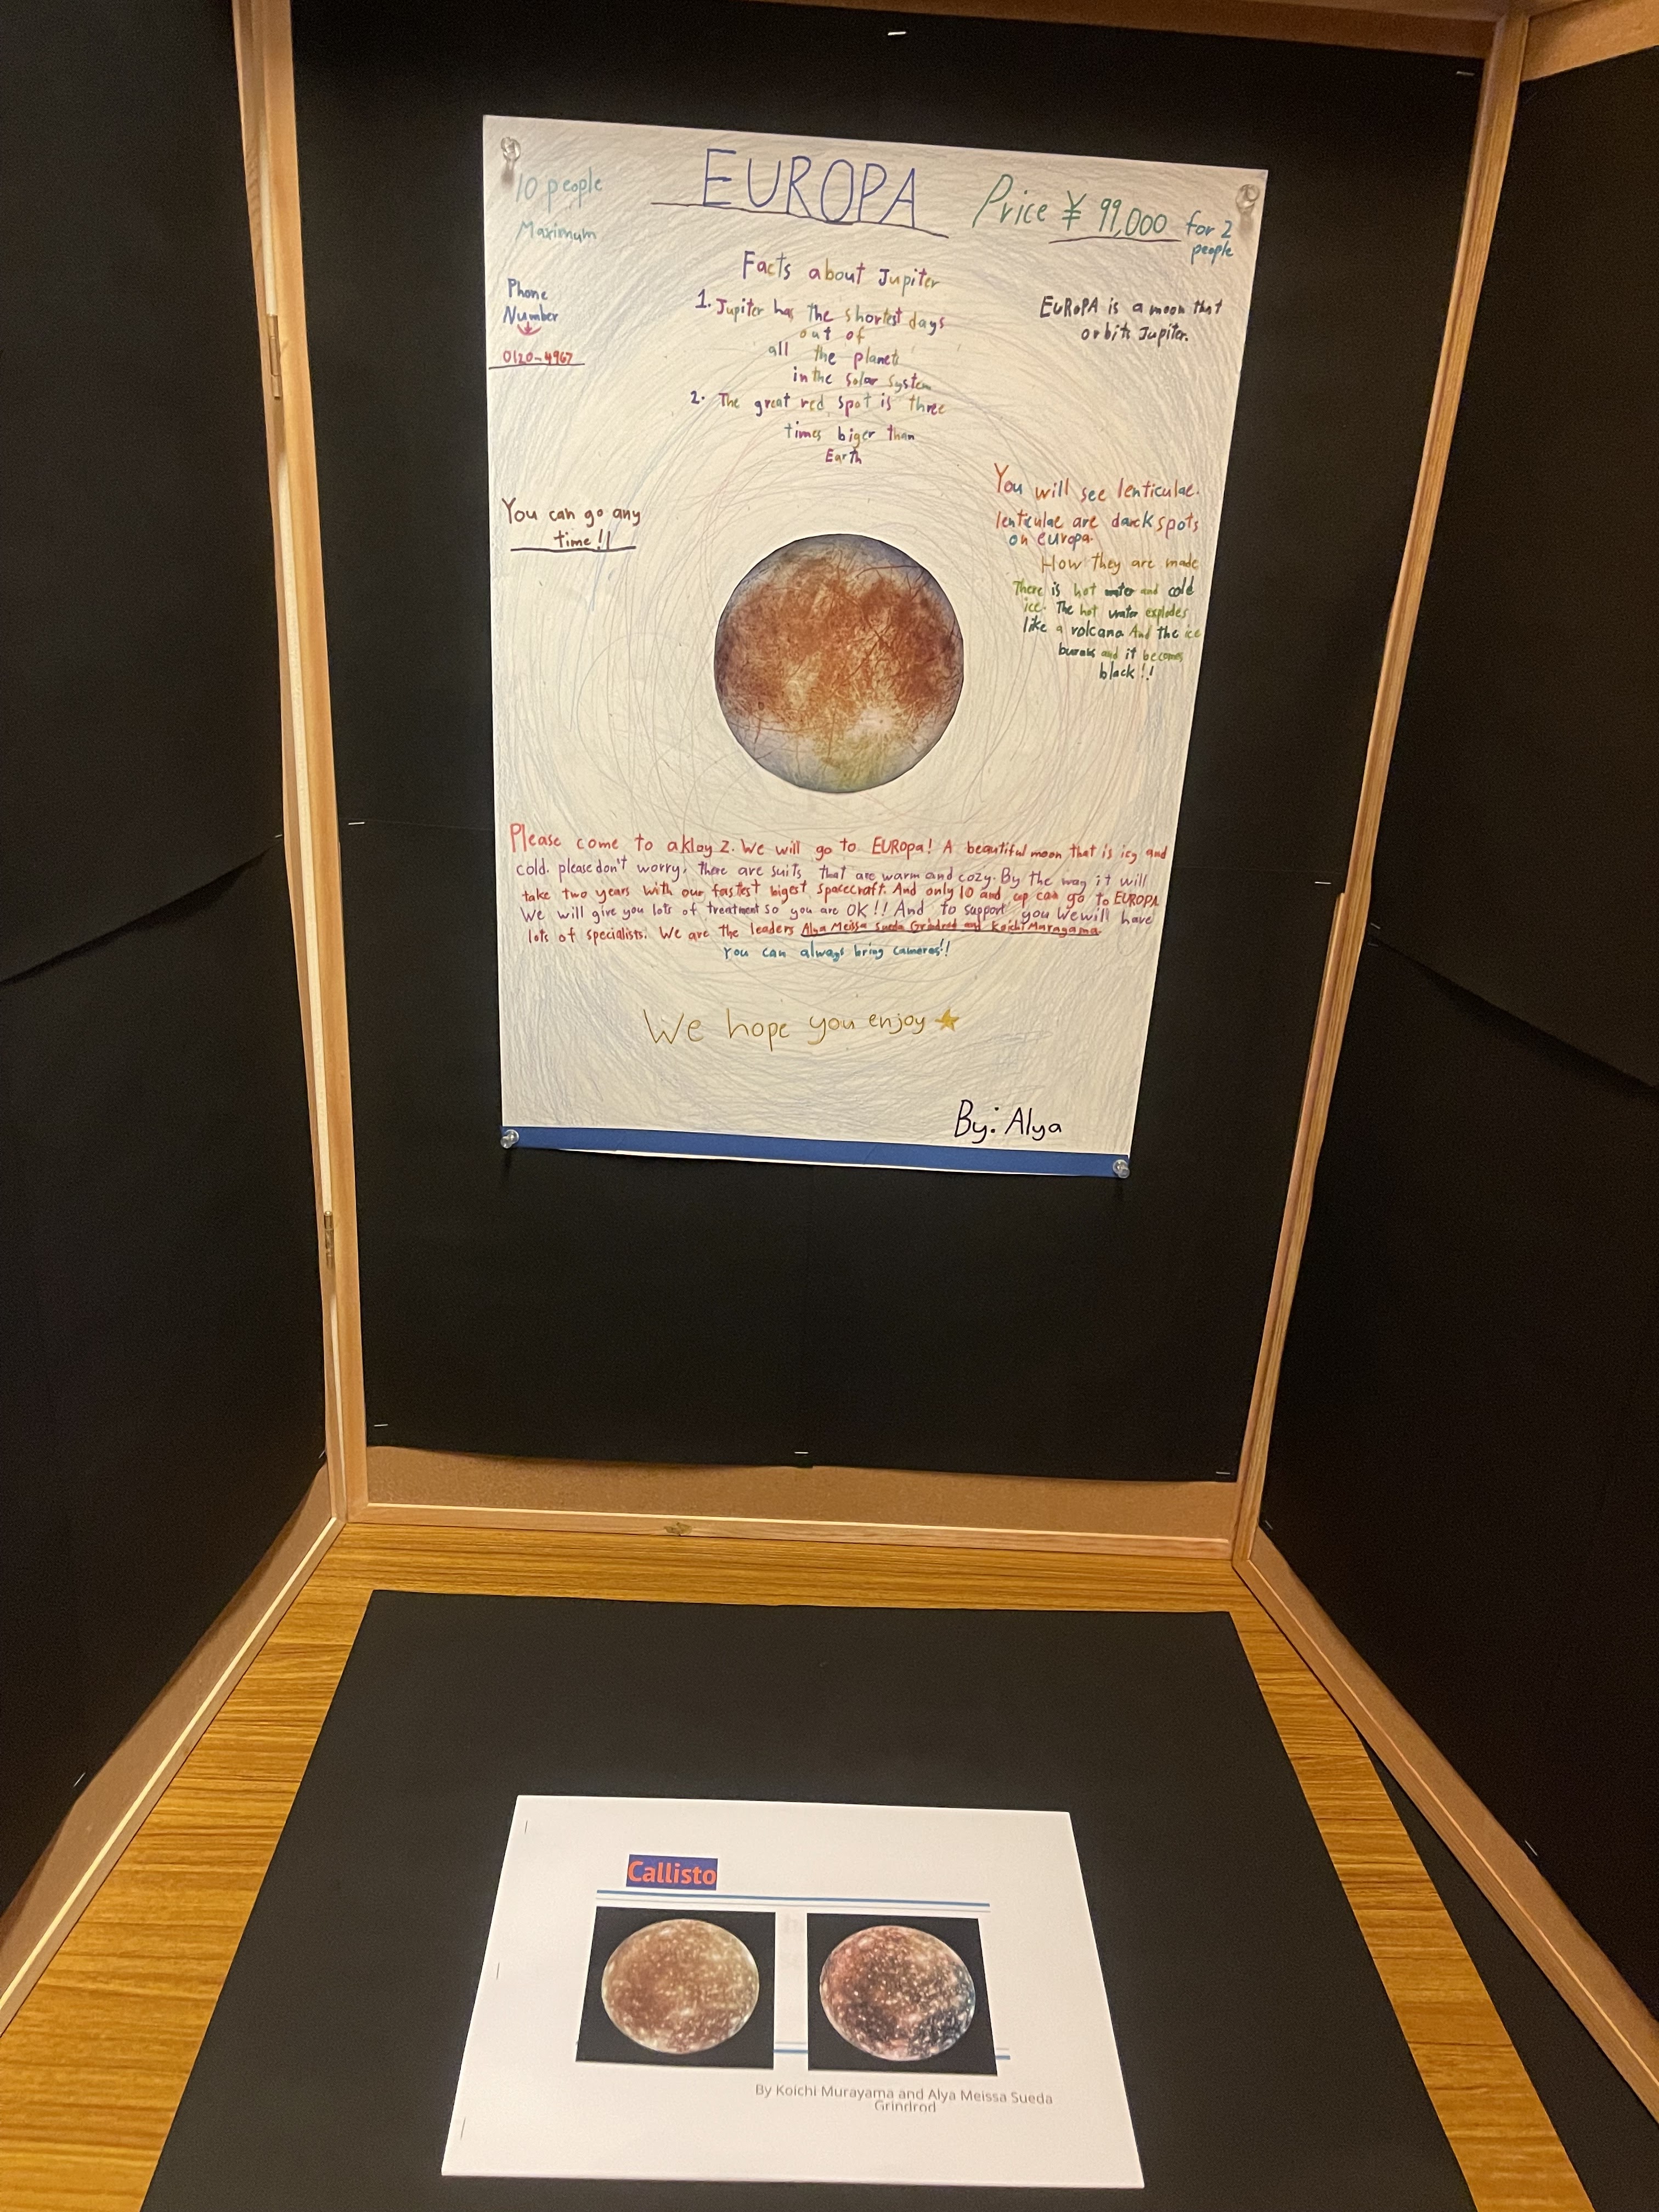 EUROPA
10 people
Maximum
Price ¥ 99,000 for 2
people
Phone
Number
0120-4967
Facts about Jupiter
1. Jupiter has the shortest days
out of
all the planets
in the Solar System
2. The great red spot is three
times biger than
Earth
EUROPA is a moon that
orbits Jupiter.
You can go any
time!!
You will see lenticulae.
lenticulae are darck spots
on europa.
How they are made
There is hot water and cold
ice. The hot water explodes
like a volcano And the ice
and it becomes
black!!
Please come to akloy 2. We will go to EUROpa! A beautiful moon that is icy and
cold. please don't worry, there are suits that are warm and cozy. By the way it will
take two years with our fastest bigest spacecraft. And only 10 and up can go to EUROPA
We will give you lots of treatment so you are OK!! And to support you We will have
lots of specialists. We are the leaders Alya Meissa Sueda Grindrod and Koichi Murayama.
You can always bring cameras!!
We hope you enjoy
By: Alya
Callisto
By Koichi Murayama and Alya Meissa Sueda
Grindrod